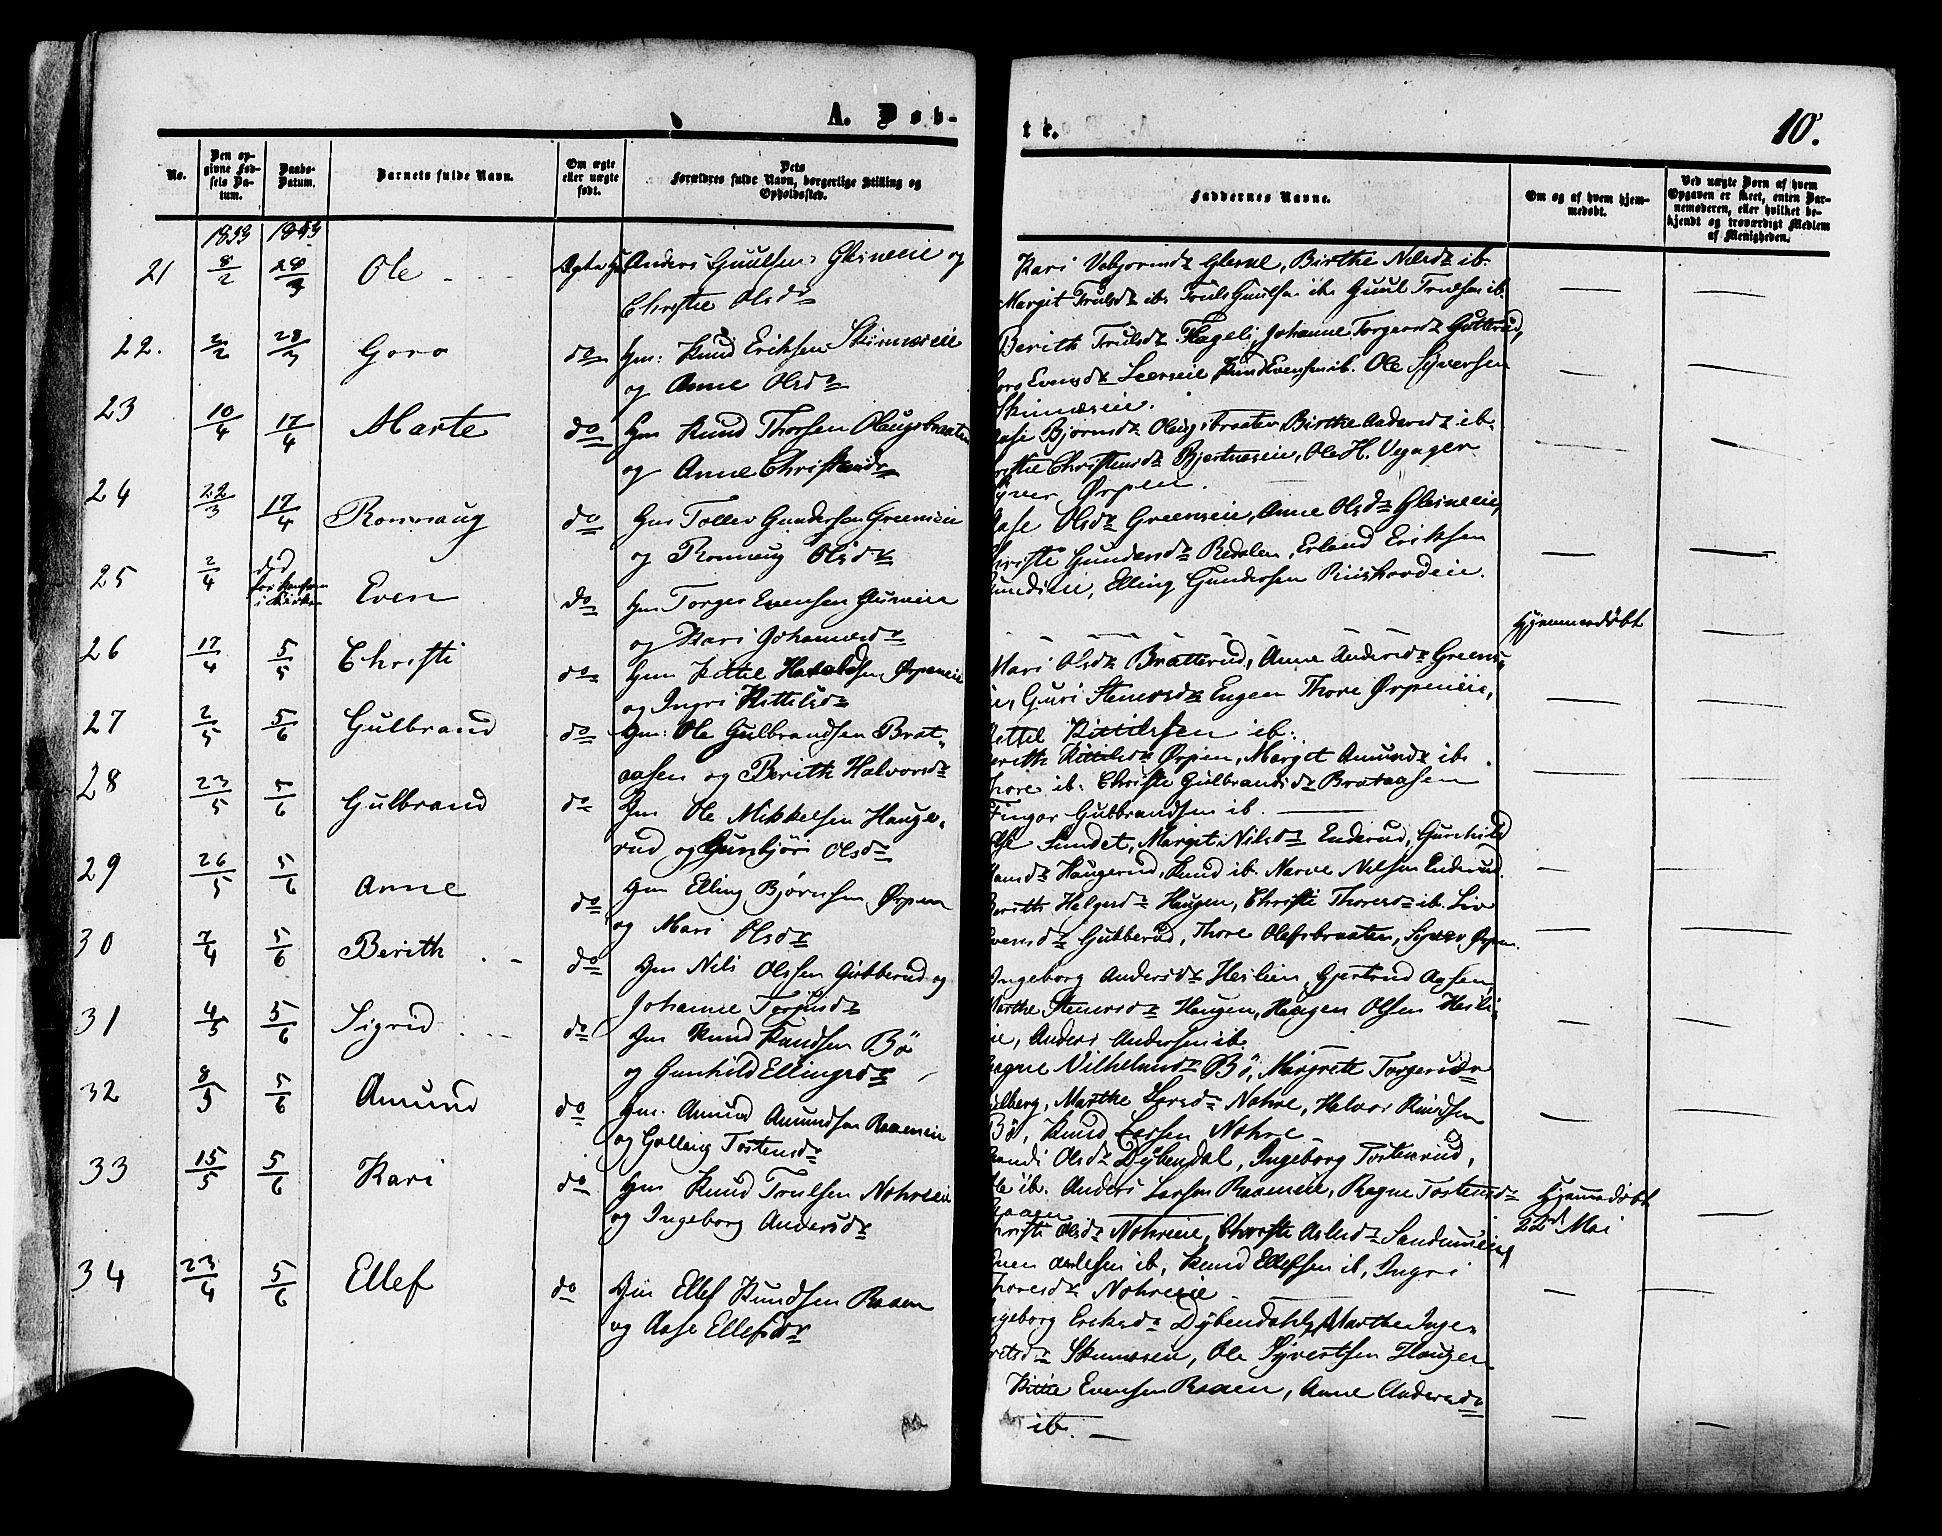 A. Døb-
te.
10.
No.
Den op-
givne Fød-
sels Da-
tum.
Daabs-
Datum.
Barnets fulde Navn.
Om ægte
eller uægte
født.
Dets
Forældres fulde Navn, borgerlige Stilling og
Opholdssted.
Faddernes Navne.
Om og af hvem hjem-
medøbt.
Ved uægte Børn af hvem
Opgaven er skeet, enten Bar-
nemoderen, eller hvilket be-
kjendt og troværdigt Medlem
af Menigheden.
1853 1853
21 8/2 28/3 Ole Ægte Gm Anders Guulsen Glesneeie og
Christie Olsdr
Kari Glesne, Birthe Nilsdr ib.
Margit Trulsdr ib. Truls Guulsen ib. Guul Truelsen ib.
22. 2/2 28/3 Goro do Gm: Knud Eriksen Skinneseie
og Anne Olsdr
Berith Trulsdr Flageli, Johanne Torgersdr Gutterud,
Evensdr Leerseie Knud Evensen ib. Ole Syversen
Skinneseie.
23 10/4 17/4 Marte do Gm Knud Thorsen Olaugsbraaten
og Anne Christensdr
Aase Bjørnsdr Olaugsbraaten, Birthe Andersdr ib.
Christensdr Ole H. Veggger
Syver Ørpen.
24 22/3 17/4 Ronnaug do Gm Tollev Gundersen Greenseie
og Ronnaug Olsdr
Aase Olsdr Greenseie, Anne Olsdr Glesneeie,
Christie Gundersdr Redalen, Erland Eriksen
Elling Gundersen
25 2/4 død
Even do Gm Torger Evensen
og Kari Johannesdr
Hjemmedøbt
26 17/4 5/5 Christi do Gm Kittel Haraldsen Ørpeneie
og Ingri Kittilsdr
Mari Olsdr Bratterud, Anne Andersdr Greens-
eie, Guri Stenersdr Engen Thore Ørpeneie,
Kettel Kittilsen ib.
27 2/5 5/6 Gulbrand do Gm: Ole Gulbrandsen Brat-
aasen og Berith Halvorsdr
Berith Kittilsdr Ørpen, Margit Amundsdr ib.
Thore ib. Christie Gulbrandsdr Brataasen
Fingar Gulbrandsen ib.
28 23/5 5/6 Gulbrand do Gm Ole Mikkelsen Hauge-
rud og Gunbjør Olsdr
Sundet, Margit Nilsdr Enderud, Gunhild
Hansdr Haugerud, Knud ib. Narve Nilsen Enderud.
29 26/5 5/6 Anne do Gm Elling Bjørnsen Ørpen
og Mari Olsdr
Berith Helgesdr Haugen, Christi Thoresdr ib. Liv
Evensdr Gubberud, Thore Olafsbraaten, Syver Ørpen.
30 7/4 5/6 Berith do Gm Nils Olssen Gubberud og
Johanne Torjusdr
Ingeborg Andersdr Heslien, Gjertrud Aasen,
Marthe Stenersdr Haugen, Haagen Olsen Hesli-
eie, Anders Andersen ib.
31 4/5 5/6 Sigrid do Gm Knud Knudsen Bø
og Gunhild Ellingsdr
Ragne Vilhelmsdr Bø, Margrete Torgersdr
Marthe Larsdr Nohre, Halvor Knudsen
Bø, Knud Larsen Nohre
32 8/5 5/6 Amund do Gm. Amund Amundsen Raaeneie
og Golleug Tostensdr
Randi Olsdr Dybendal, Ingeborg Tostenrud,
Ole ib. Anders Larsen Raaeneie, Ragne Tostensdr
Raaen
33 15/5 5/6 Kari do Gm Knud Trulsen Nohreeie
og Ingeborg Andersdr
Christi Olsdr Nohreeie, Christi Aslesdr
Even Aslesen ib, Knud Ellefsen ib, Ingri
Thoresdr Nohreeie
Hjemmedøbt
22d Mai
34 23/4 5/6 Ellef do Gm Ellef Knudsen Raaen
og Aase Ellefsdr
Ingeborg Eriksdr Dybendahl, Marthe Inge-
bretsdr Ole Syvertsen Haugen
Kittil Evensen Raaen, Anne Andersdr
ib.